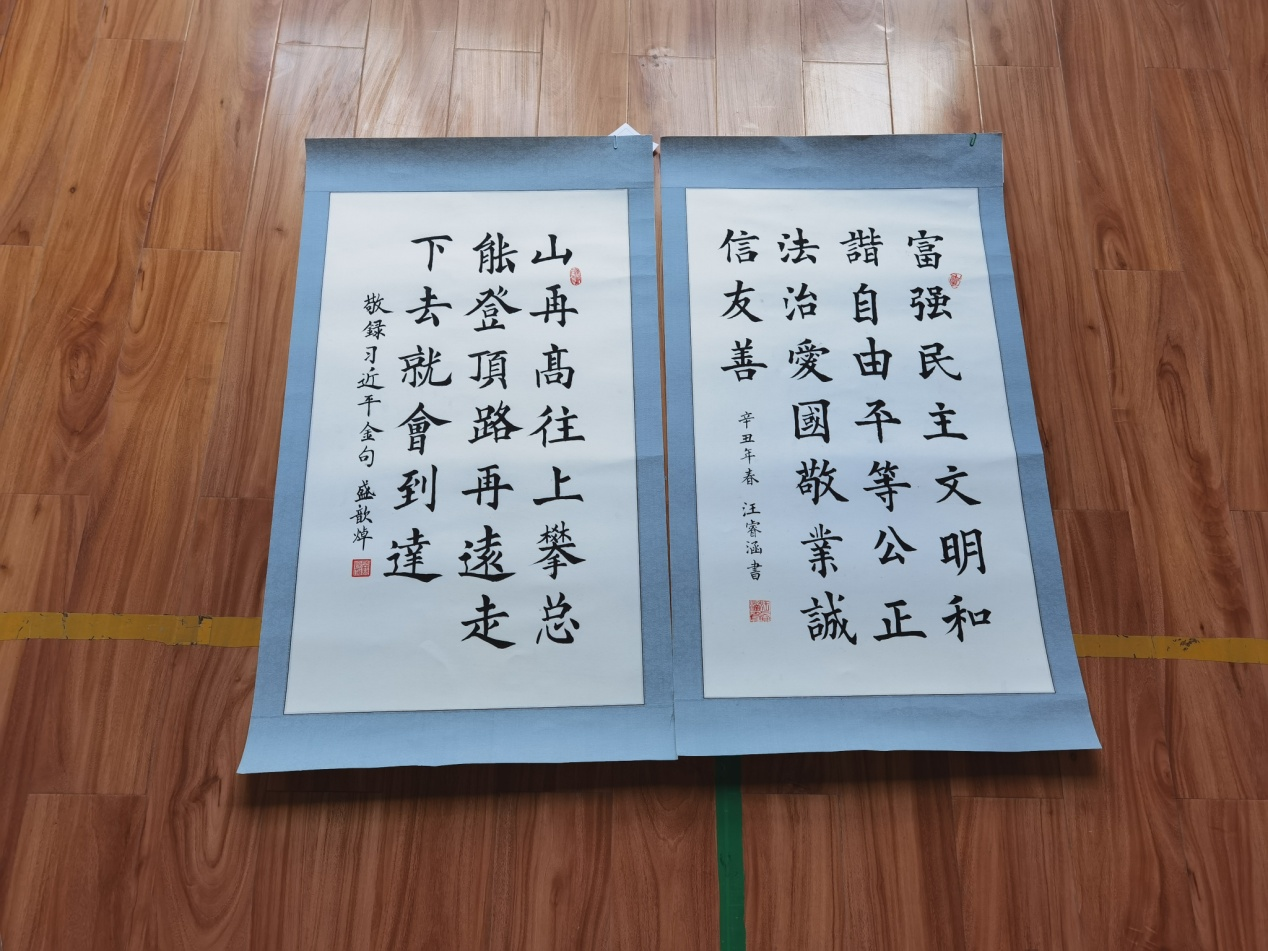 富强民主文明和
諧自由平等公正
法治愛國敬業誠
信友善
辛丑年春 汪睿涵書
山再高往上攀总
能登頂路再遠走
下去就會到達
敬録习近平金句 盛歆焯